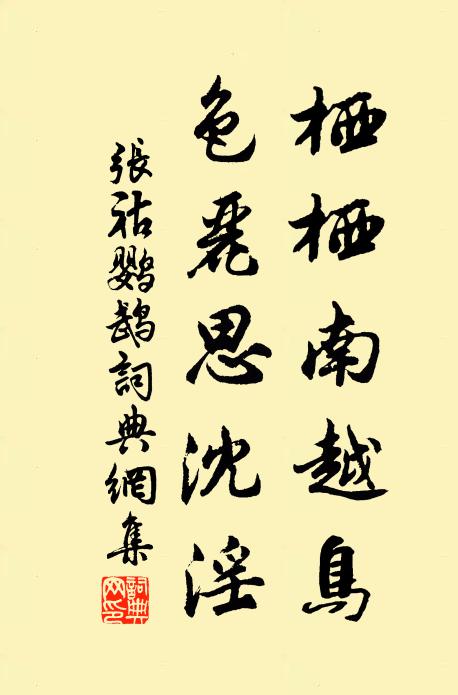 栖栖南越鳥
色麗思沈淫
張祜鸚鵡詞典網集
詞典網印